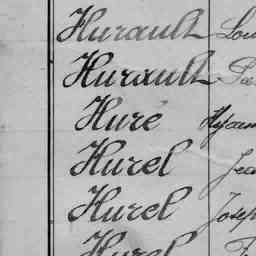 Hurault Lou
Hurault
Huré Hyacin
Hurel Jea
Hurel Josep
Hurel